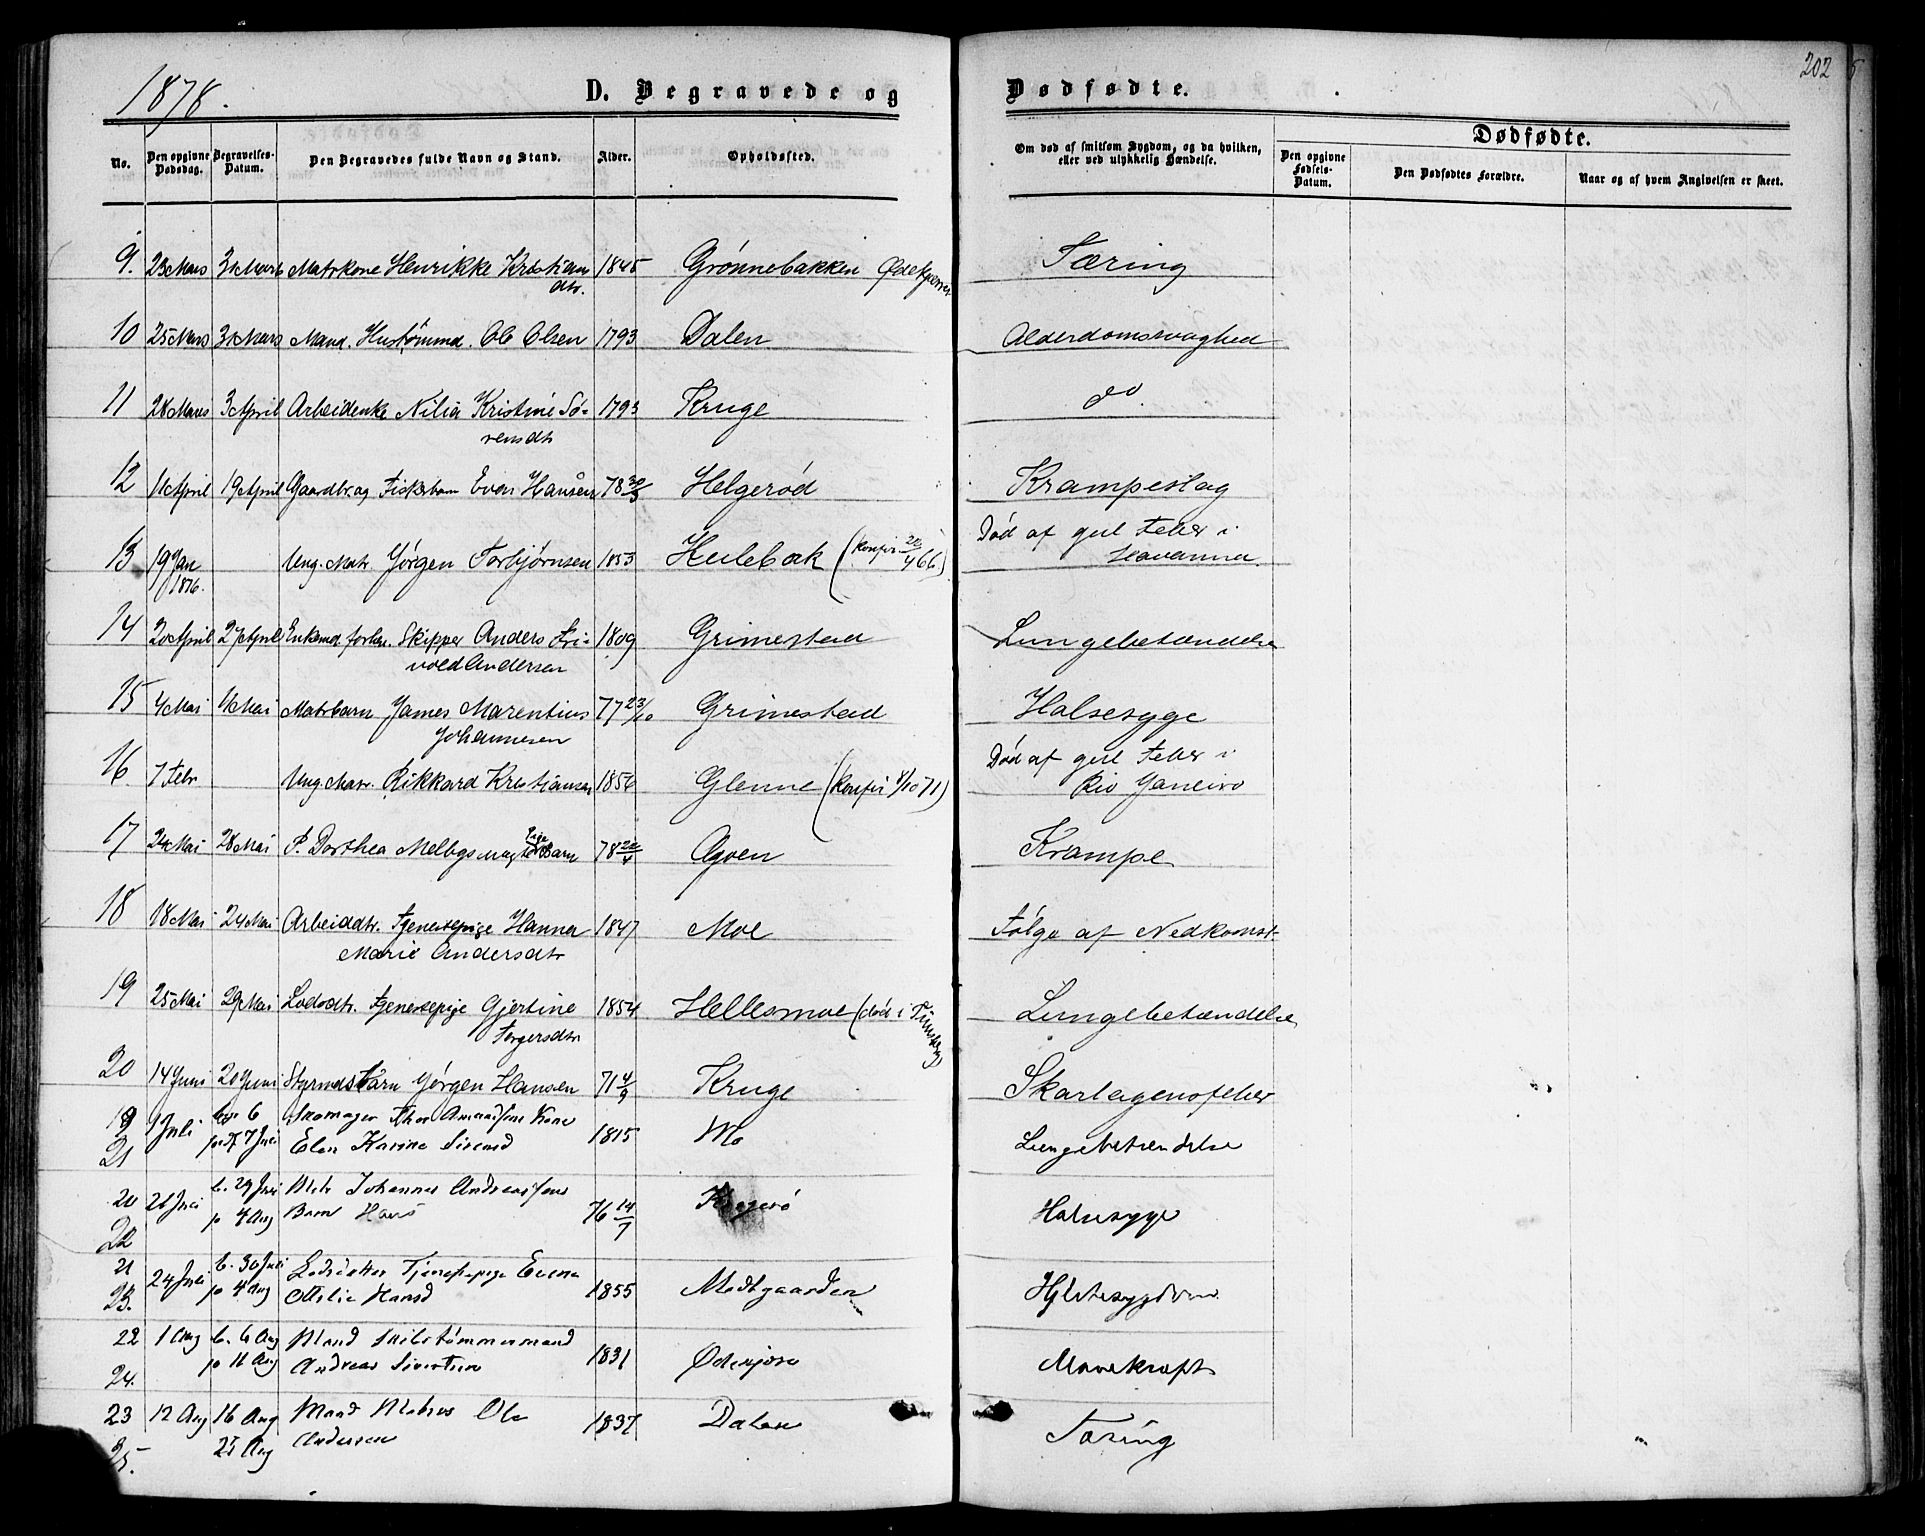 1878.
D. Begravede og
Dødfødte.
202
No.
Den opgivne Dødsdag.
Begravelses-Datum.
Den Begravedes fulde Navn og Stand.
Alder.
Opholdssted.
Om død af smitsom Sygdom, og da hvilken, eller ved ulykkelig Hændelse.
Dødfødte.
Den opgivne Fødsels-Datum.
Den Dødfødtes Forældre.
Naar og af hvem Angivelsen er skeet.
9. 23 Mars 31 Mars Matrkone Henrikke Kristians 1845 Grønnebakken Ødekjæren Tæring
dtr.
10 25 Mars 31 Mars Mand. Hustømmd. Ole Olsen 1793 Dalen Alderdomssvaghed
11 28 Mars 3 April Arbeidenke Nilia Kristine Sø- 1793 Kruge do.
rensdtr
12 11 April 19 April Gaardbr. og Fiskerbarn Even Hansen 78 30/3 Helgerød Krampeslag
13 19 Jan Ung. Matr. Jørgen Torbjørnsen 1853 Heilebak (konfir 4 66) Død af gul Feber i
1876. Havanna.
14 20 April 27 April Enkemd. forhn. Skipper Anders Fri- 1809 Grimestad Lungebetændelse
vold Andersen
15 4 Mai 11 Mai Matrbarn James Marentius 77 23/10 Grimestad Halsesyge
Johannesen
16. 7 Febr Ung. Matr. Rikkard Kristiansen 1856 Glenne (konfir 8/10 71) Død af gul Feber i
Rio Janeiro
17 24 Mai 28 Mai P. Dorthea Melbgs uægte Pige Barn 78 20/4 Agoen Krampe
18 18 Mai 24 Mai Arbeiddtr. Tjenestepige Hanna 1847 Moe Følge af Nedkomst
Marie Andersdtr
19 25 Mai 29 Mai Lodsdtr. Tjenestepige Gjertine 1854 Hellesmoe (død i Tønsberg) Lungebetændelse
Torgersdtr
20 14 Juni 20 Juni Styrmdsbarn Jørgen Hansen 71 4/9 Kruge Skarlagensfeber
19 1 Juli 6 Skomager Kone
21 p 7 Juli Elen Karine Siversd 1815 Mo Lungebetændelse
20 21 Juli b. 29 Juli Matr Johannes Andreassens
22 p 4 Aug Barn Hans 76 14/7 Halsesyge
21 24 Juli b. 30 Juli Lodsdatter Tjenestepige
23. p 4 Aug Otilie Hansd 1855 Medtgaarden Hjertesygdom
22 1 Aug b. 6 Aug Mand Skibstømmermand
24. p 11 Aug Andreas Sivertsen 1831 Ødekjæra Mavekræft
23 12 Aug 16 Aug Mand Matros Ole 1837 Dalen Tæring
25. 25 Aug Andersen